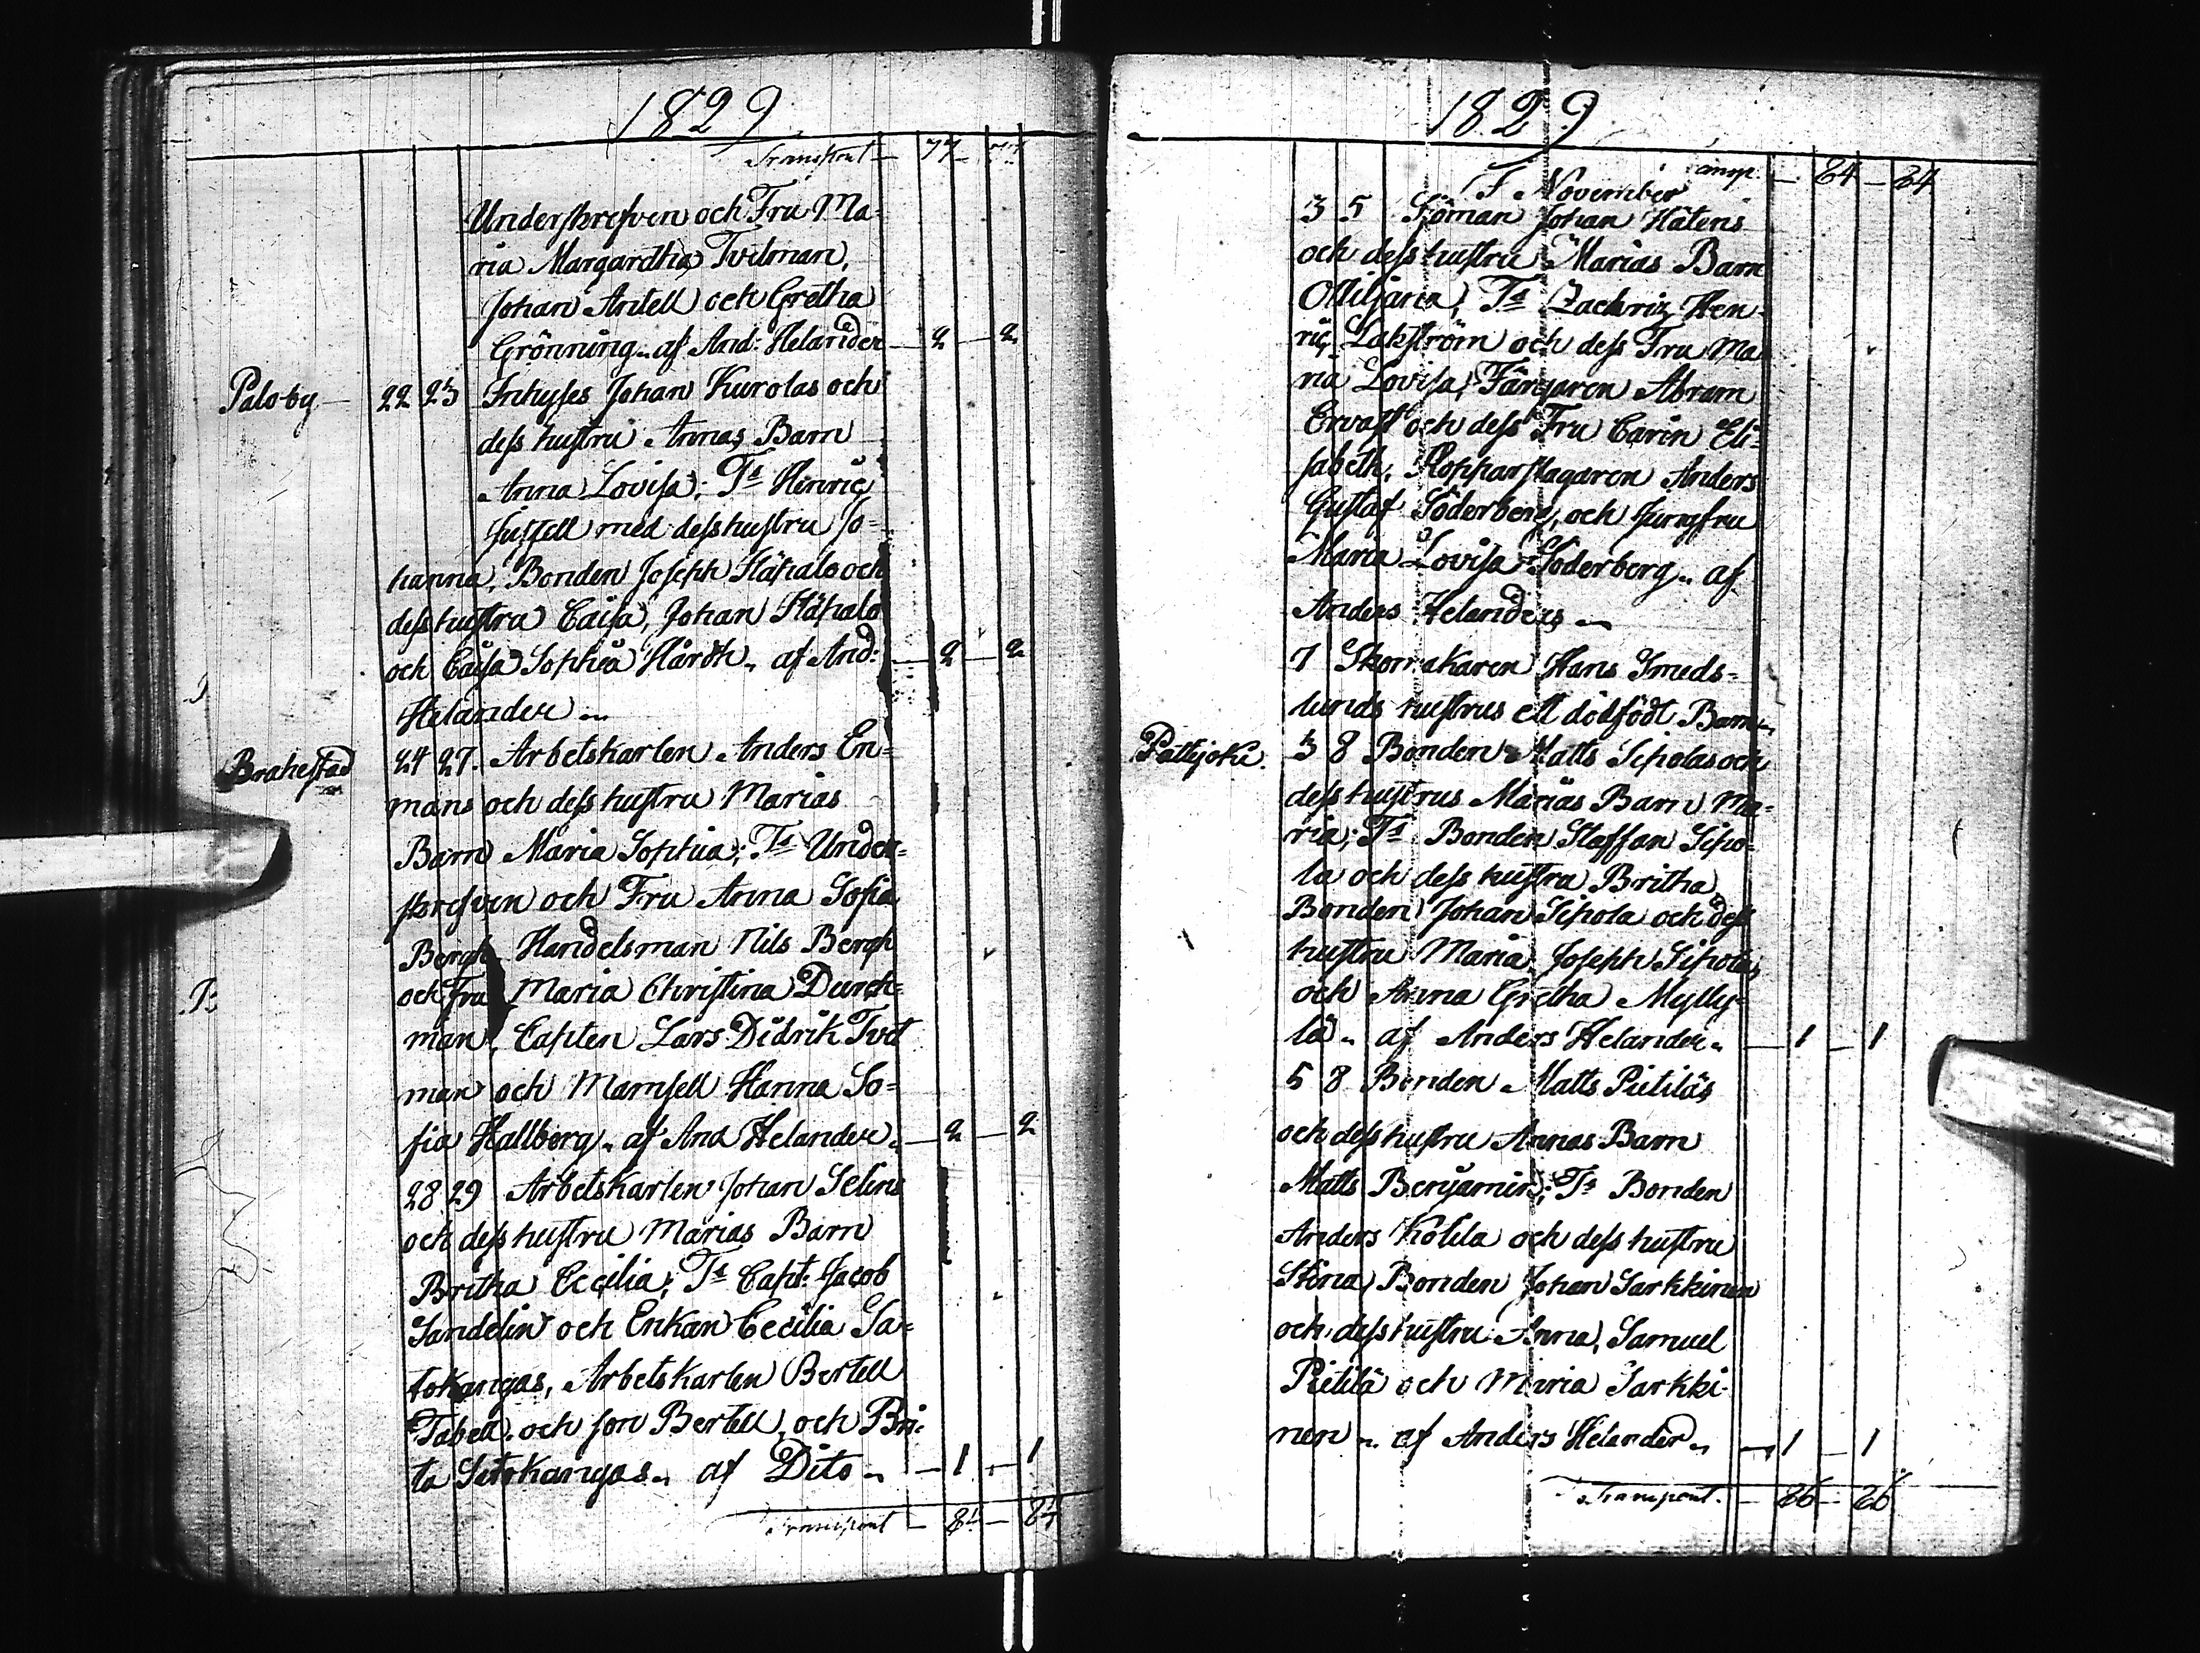 1829
Transport — 77 — 77
Underskrefven och Fru Ma=
ria Margaretha Tvetman,
Johan Antell och Gretha
Grönning.. af And: Helander — 2 — 2
Paloby — 22 23 Inhyses Johan Kurolas och
dess hustru Annas Barn
Anna Lovisa; Ts Hinric
Jussell med dess hustru Jo=
hanna, Bonden Joseph Häpalo och
dess hustru Caisa, Johan Häpalo
och Caisa Sophia Hårdh.. af And: — 2 — 2
Helander ..
Brahestad 24 27. Arbetskarlen Anders En=
mans och dess hustru Marias
Barn Maria Sophia; Ts Under=
skrefven och Fru Anna Sofia
Bergh, Handelsman Nils Bergh
och Fru Maria Christina Durch=
man, Capten Lars Didrik Tvet
man och Mamsell Hanna So=
fia Hallberg.. af And Helander.. — 2 — 2
28 29 Arbetskarlen Johan Selins
och dess hustru Marias Barn
Britha Cecilia; Ts Capt: Jacob
Sandelin och Enkan Cecilia Sa=
tokangas, Arbetskarlen Bertell
Tabell och son Bertell, och Bri=
ta Satokangas.. af Dito.. — 1 — 1
Transport — 84 — 84
1829
Transp. — 84 — 84
November
3 5 Sjöman Johan Hätens
och dess hustru Marias Barn
Ottiljana; Ts Zachriz Hen=
ric Lakström och dess Fru Ma
ria Lovisa, Färgaren Abram
Ervast och dess Fru Carin Eli=
sabeth, Kopparslagaren Anders
Gustaf Söderberg, och Jungfru
Maria Lovisa Söderberg.. af
Anders Helander ..
7 Skomakaren Hans Smeds=
lunds hustrus ett dödfödt Barn..
Pattijoki. 3 8 Bonden Matts Sipolas och
dess hustrus Marias Barn Ma=
ria; Ts Bonden Staffan Sipo=
la och dess hustru Britha
Bonden Johan Sipola och dess
hustru Maria, Joseph Sipola,
och Anna Gretha Mylly=
lä.. af Anders Helander.. — 1 — 1
5 8 Bonden Matts Pietiläs
och dess hustru Annas Barn
Matts Benjamin; Ts Bonden
Anders Kolila och dess hustru
Stina, Bonden Johan Sarkkinen
och dess hustru Anna, Samuel
Pietilä och Maria Sarkki=
nen.. af Anders Helander.. — 1 — 1
Transport. — 86 — 86